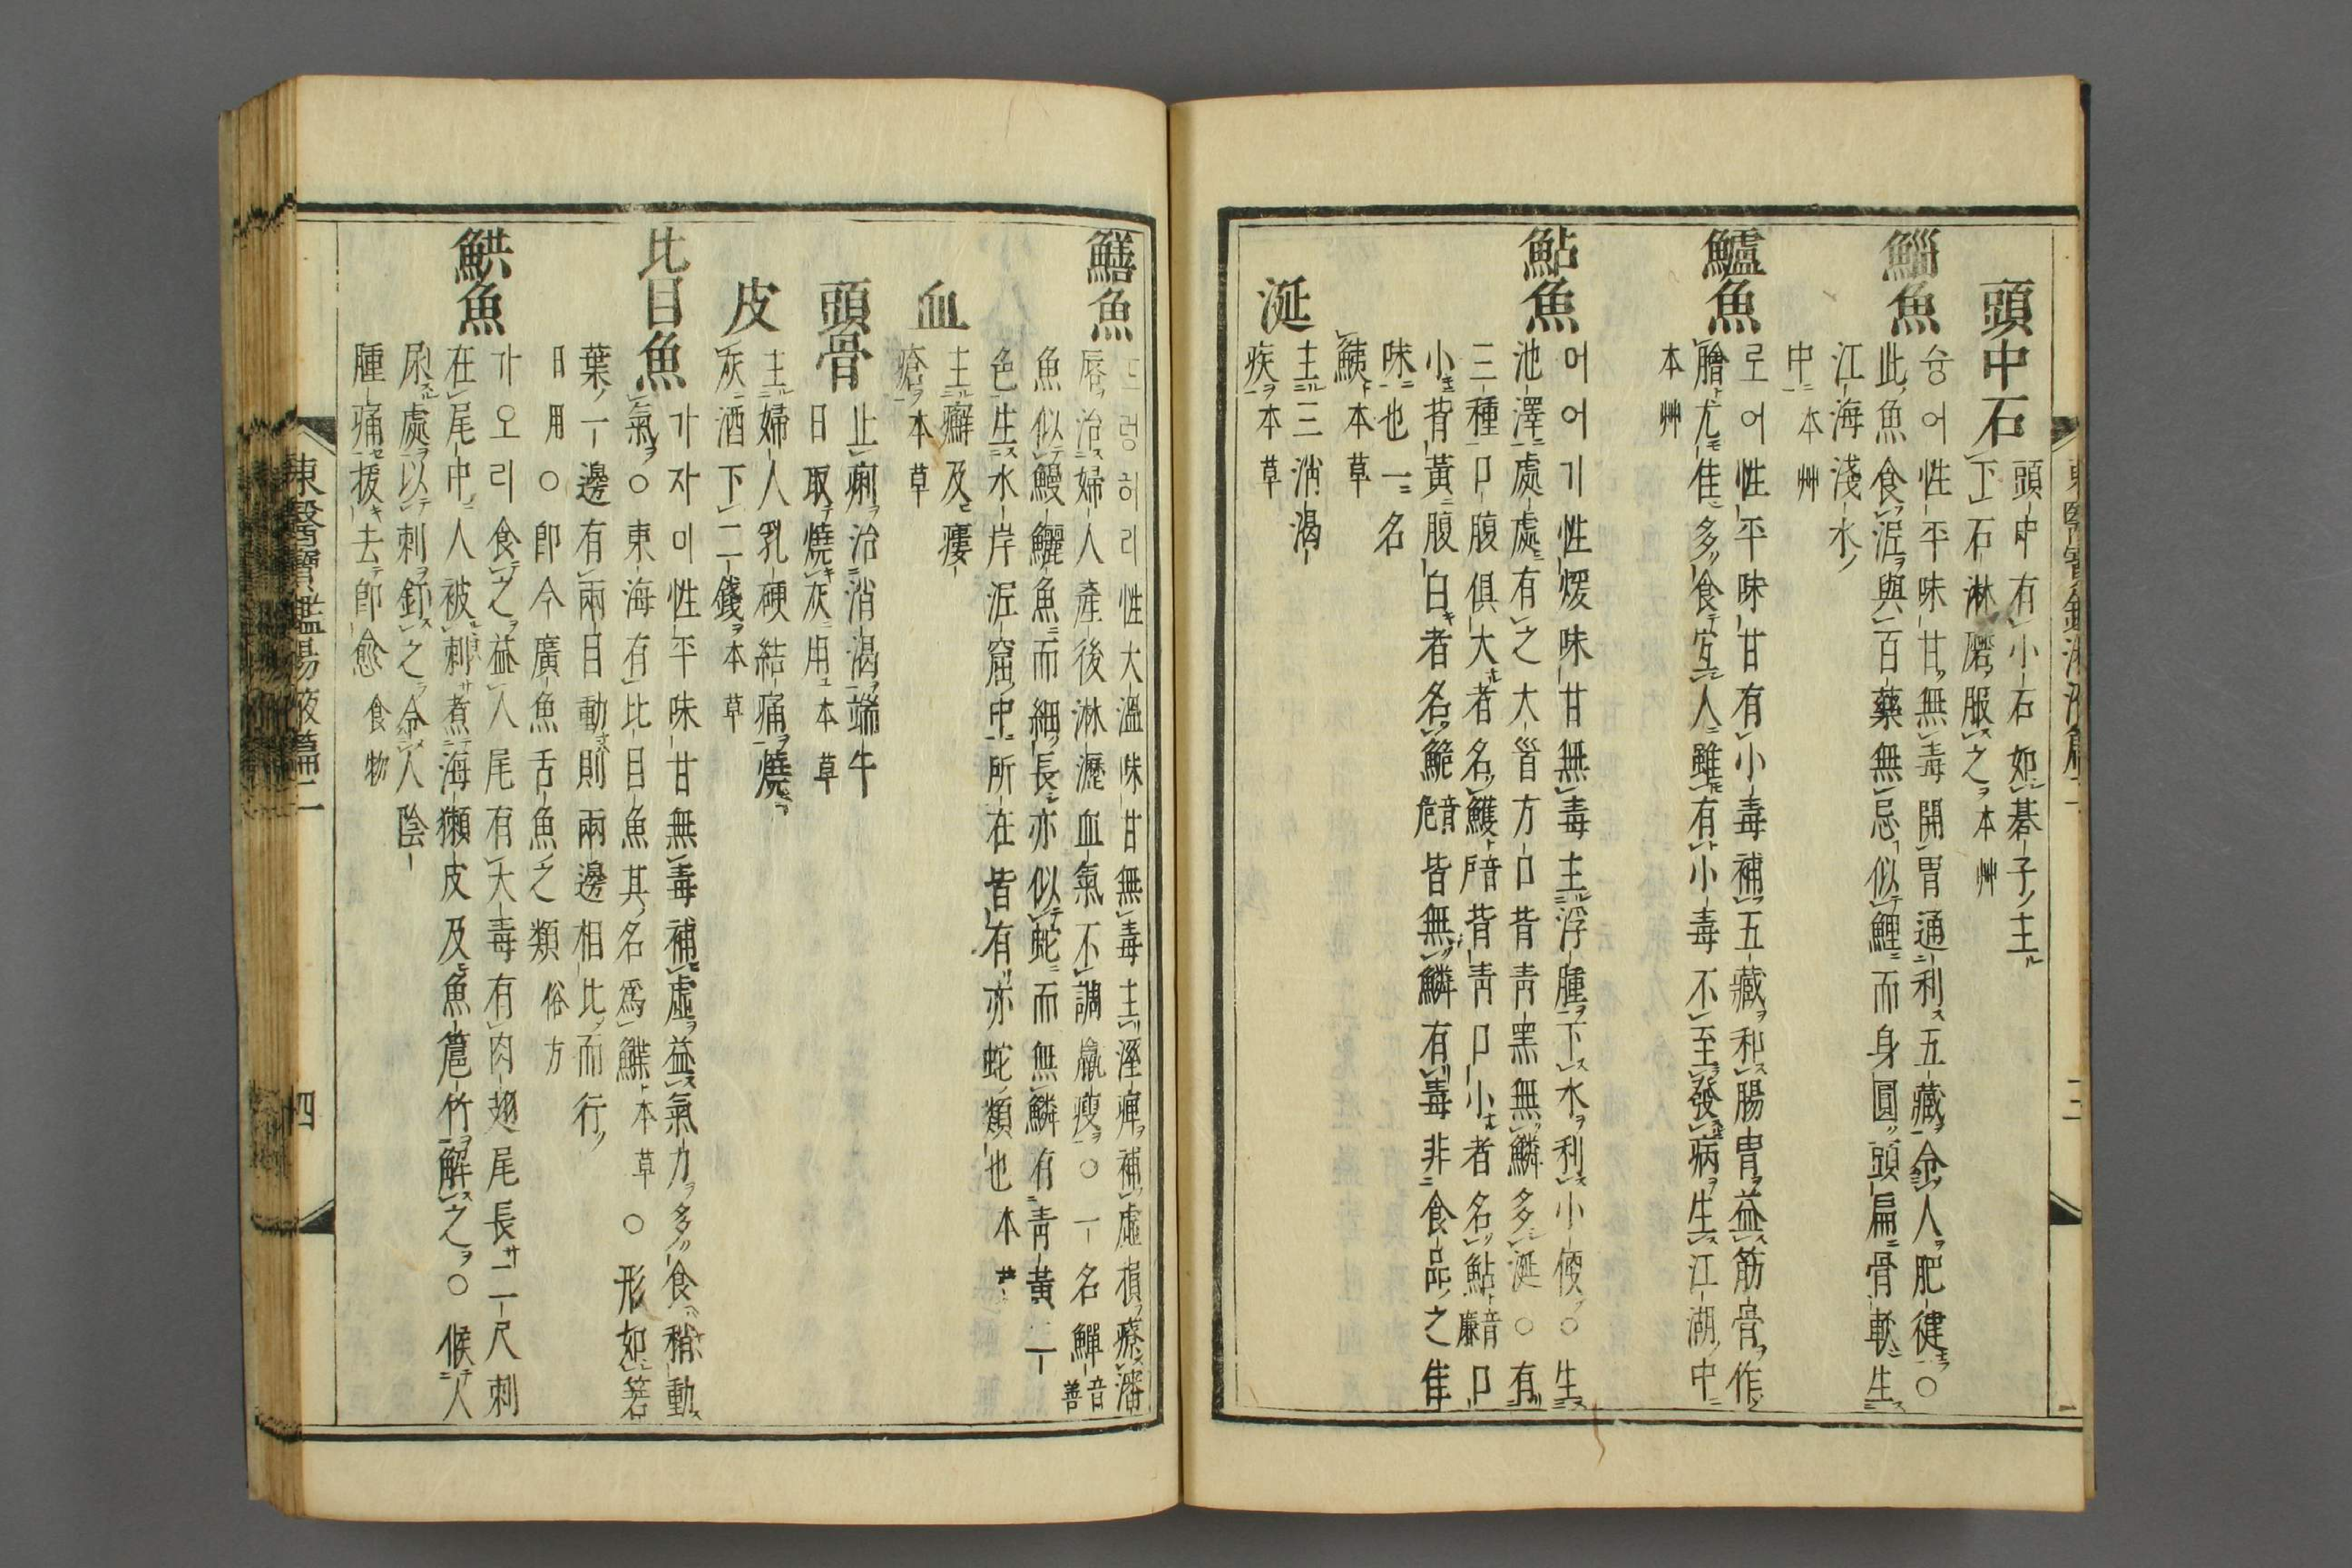 頭中石
頭中有小石如碁子主
下石淋磨服之本艸
鯔魚
숭어性平味甘無毒開胃通利五藏令人肥健○
此魚食泥與百藥無忌似鯉而身圓頭扁骨軟生
江海淺水
中本艸
鱸魚
로어性平味甘有小毒補五藏和腸胃益筋骨作
鱠尤佳多食宜人雖有小毒不至發病生江湖中
本艸
鮎魚
머어기性煖味甘無毒主浮腫下水利小便○生
池澤處處有之大首方口背靑黑無鱗多涎○有
三種口腹俱大者名鱯音戶背靑口小者名鮎音廉口
小背黃腹白者名鮠音危皆無鱗有毒非食品之佳
味也一名
鮧本草
涎
主三消渴
疾本草
東醫寶鑑湯液篇二
三
鱔魚
드렁허리性大溫味甘無毒主溼痺補虛損療瀋
脣治婦人產後淋瀝血氣不調羸瘦○一名鱓音善
魚似鰻鱺魚而細長亦似蛇而無鱗有靑黃二
色生水岸泥窟中所在皆有亦蛇類也本草
血
主癬及瘻
瘡本草
頭骨
止痢治消渴端午
日取燒灰用本草
皮
主婦人乳硬結痛燒
灰酒下二錢本草
比目魚
가자미性平味甘無毒補虛益氣力多食稍動
氣○東海有比目魚其名爲鰈本草○形如箬
葉一邊有兩目動則兩邊相比而行
日用○卽今廣魚舌魚之類俗方
鮏魚
가오리食之益人尾有大毒有肉翅尾長二尺刺
在尾中人被刺煮海獺皮及魚扈竹解之○候人
尿處以刺釘之令人陰
腫痛拔去卽愈食物
東醫寶鑑湯液篇二
四